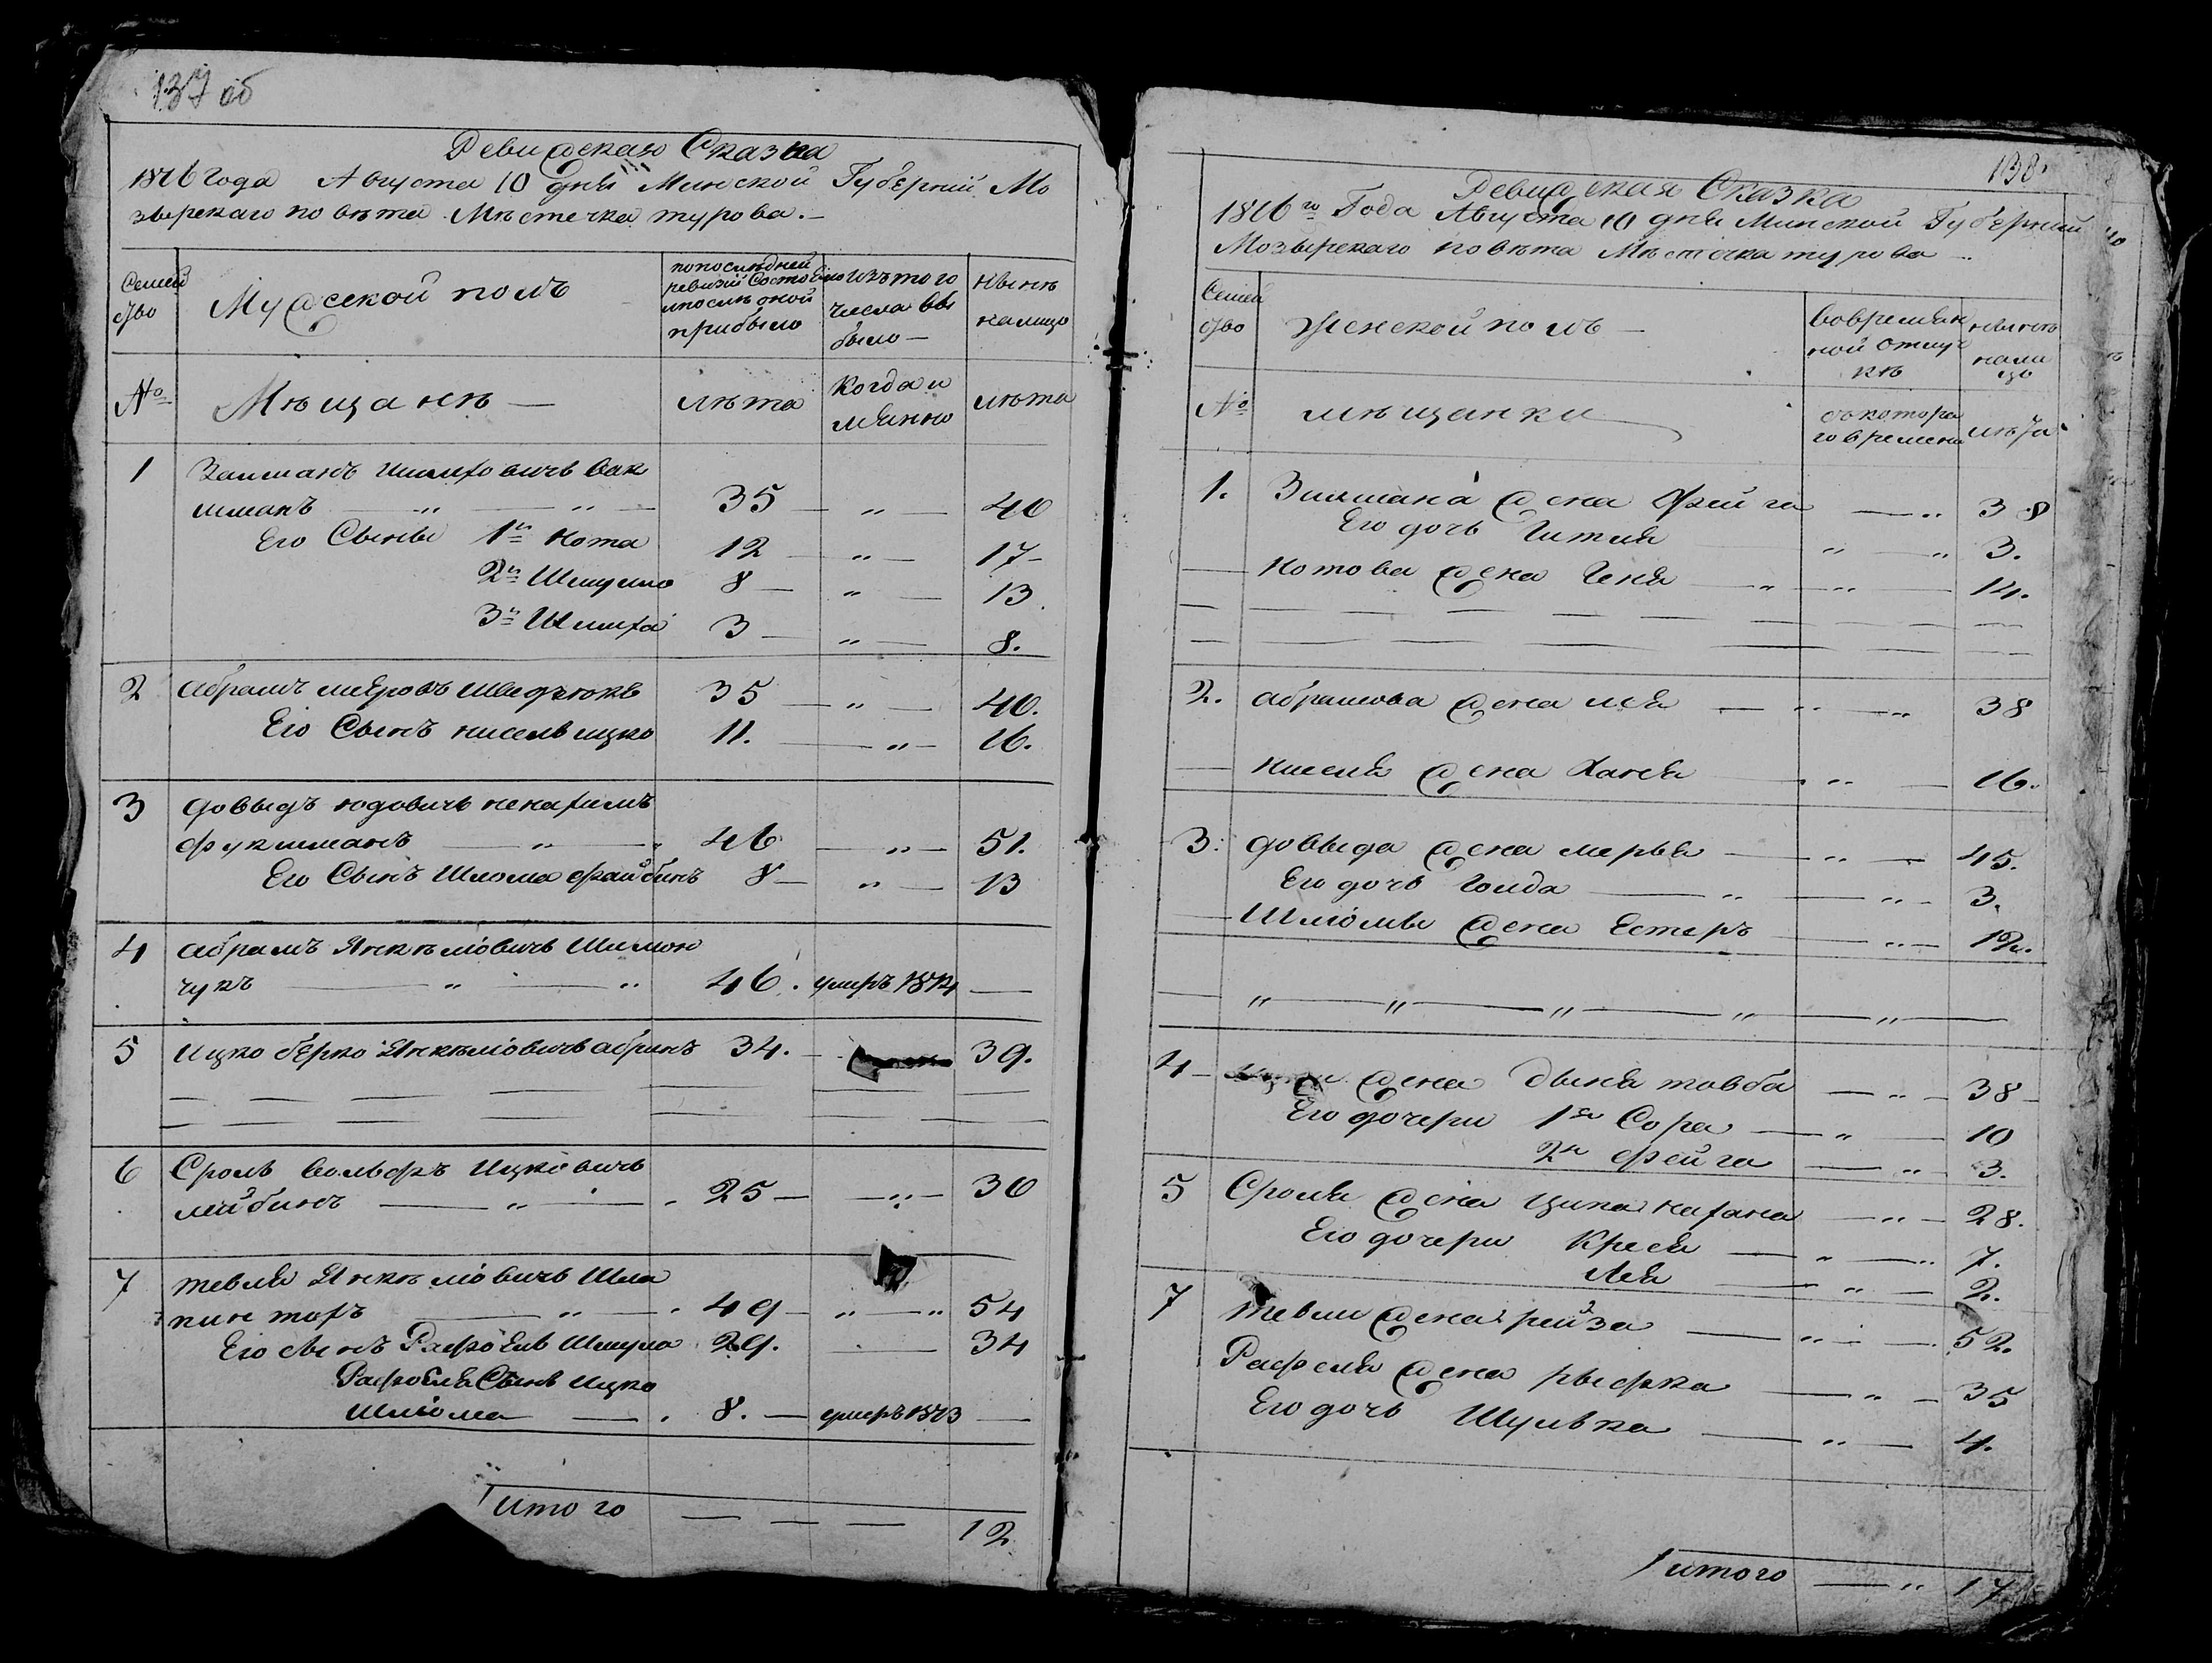 137 об
Ревизская Сказка
1816 года Августа 10 дня Минской Губернии Мо
зырскаго повѣта Мѣстечка турова. –
Семей
ство
Мужеской полъ
попоследней
ревизии Состояло
ипослѣ оной
прибыло
изъ того
числа вы
было –
Нынѣ
налицо
№
Мѣщанѣ –
лѣта
Когда и
мянно
лѣта
1 Залманъ Шлиховичь Вак
шманъ 35 – " – 40
Его Сыновья 1й Нота 12 – " – 17 –
2й Шмуило 8 – " – 13.
3й Шлиха 3 – " – 8.
2 абрамъ меяровъ 35 – " – 40.
Его Сынъ кисель ицко 11. – " – 16.
3 довыдъ юдовичь ненахимъ
фукшманъ 46 – " – 51.
Его Сынъ Шлома файбишъ 8 – " – 13
4 абрамъ Янкѣліовичь Шимон
чукъ – " – " 46. умеръ 1814 –
5 Ицко берко Янкѣліовичь абринъ 34. – 39.
6 Сроль вольфъ Ицковичь
лейбинъ – " – 25 – – " – 30
7 тевля Янкѣліовичь Шла
пинтохъ – " – 49 – " – " 54
Его сынъ Рафоель Шмуила 29. – 34
Рафоеля Сынъ Ицко
Шліома – 8. – умеръ 1813 –
итого – – – 12
138.
Ревизская Сказка
1816го Года Августа 10 дня Минской Губернии
Мозырскаго повѣта Мѣстечка турова –
Семей
ство
Женской полъ –
вовремян
ной отлуч
кѣ
нынѣ
нали
цо
№
мѣщанки
съкотора
го времени
лѣта
1. Зилмана жена Фейга – " 38
Его дочь Гитля " – " 3.
Нотова жена Геня – " – " – 14.
2. абрамова жена лея – " – " 38
киселя жена Хана – " – 16.
3. довыда жена мерья – " – 45.
Его дочь Голда – " – " – 3.
Шліомы жена Естеръ – " – 12.
– " – " – " – " – " –
4 – жена Дыня товба – " – 38 –
Его дочери 1я Сора – " – 10
2я фейга – " – 3.
5 Сроля жена Ципа нахана – " – 28.
Его дочери Крейся – " – " 7.
Лея – " – 2.
7 тевли жена рейза – " – 52.
Рафеля жена рыфка – " – 35
Его дочь Шулька – " – 4.
итого – " 17